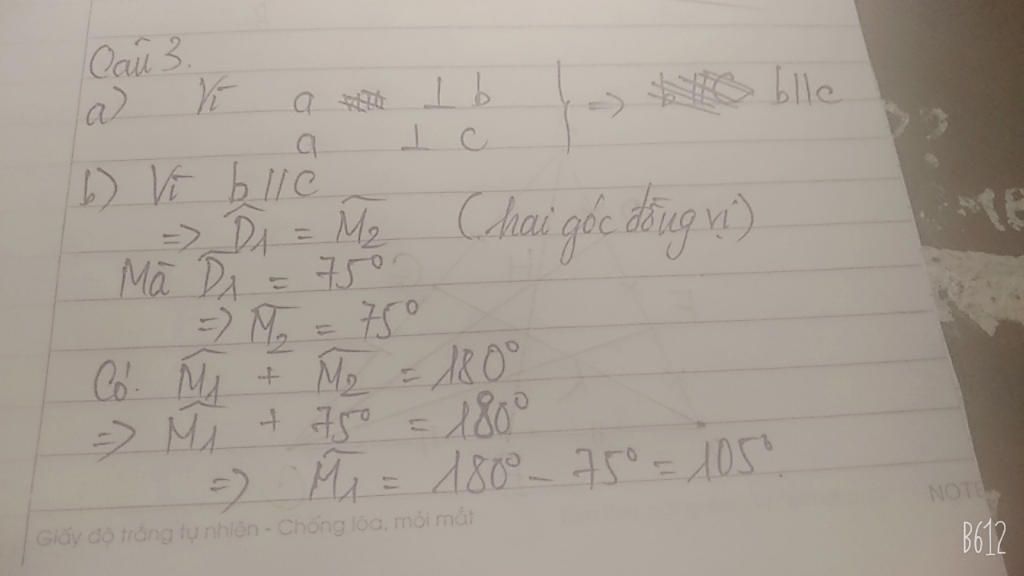 Câu 3.
a) Vì a ⊥ b } => b//c
a ⊥ c
b) Vì b//c
=> D̂1 = M̂2 (hai góc đồng vị)
Mà D̂1 = 75°
=> M̂2 = 75°
Có: M̂1 + M̂2 = 180°
=> M̂1 + 75° = 180°
=> M̂1 = 180° - 75° = 105°.
Giấy độ trắng tự nhiên - Chống lóa, mỏi mắt
NOTE
B612